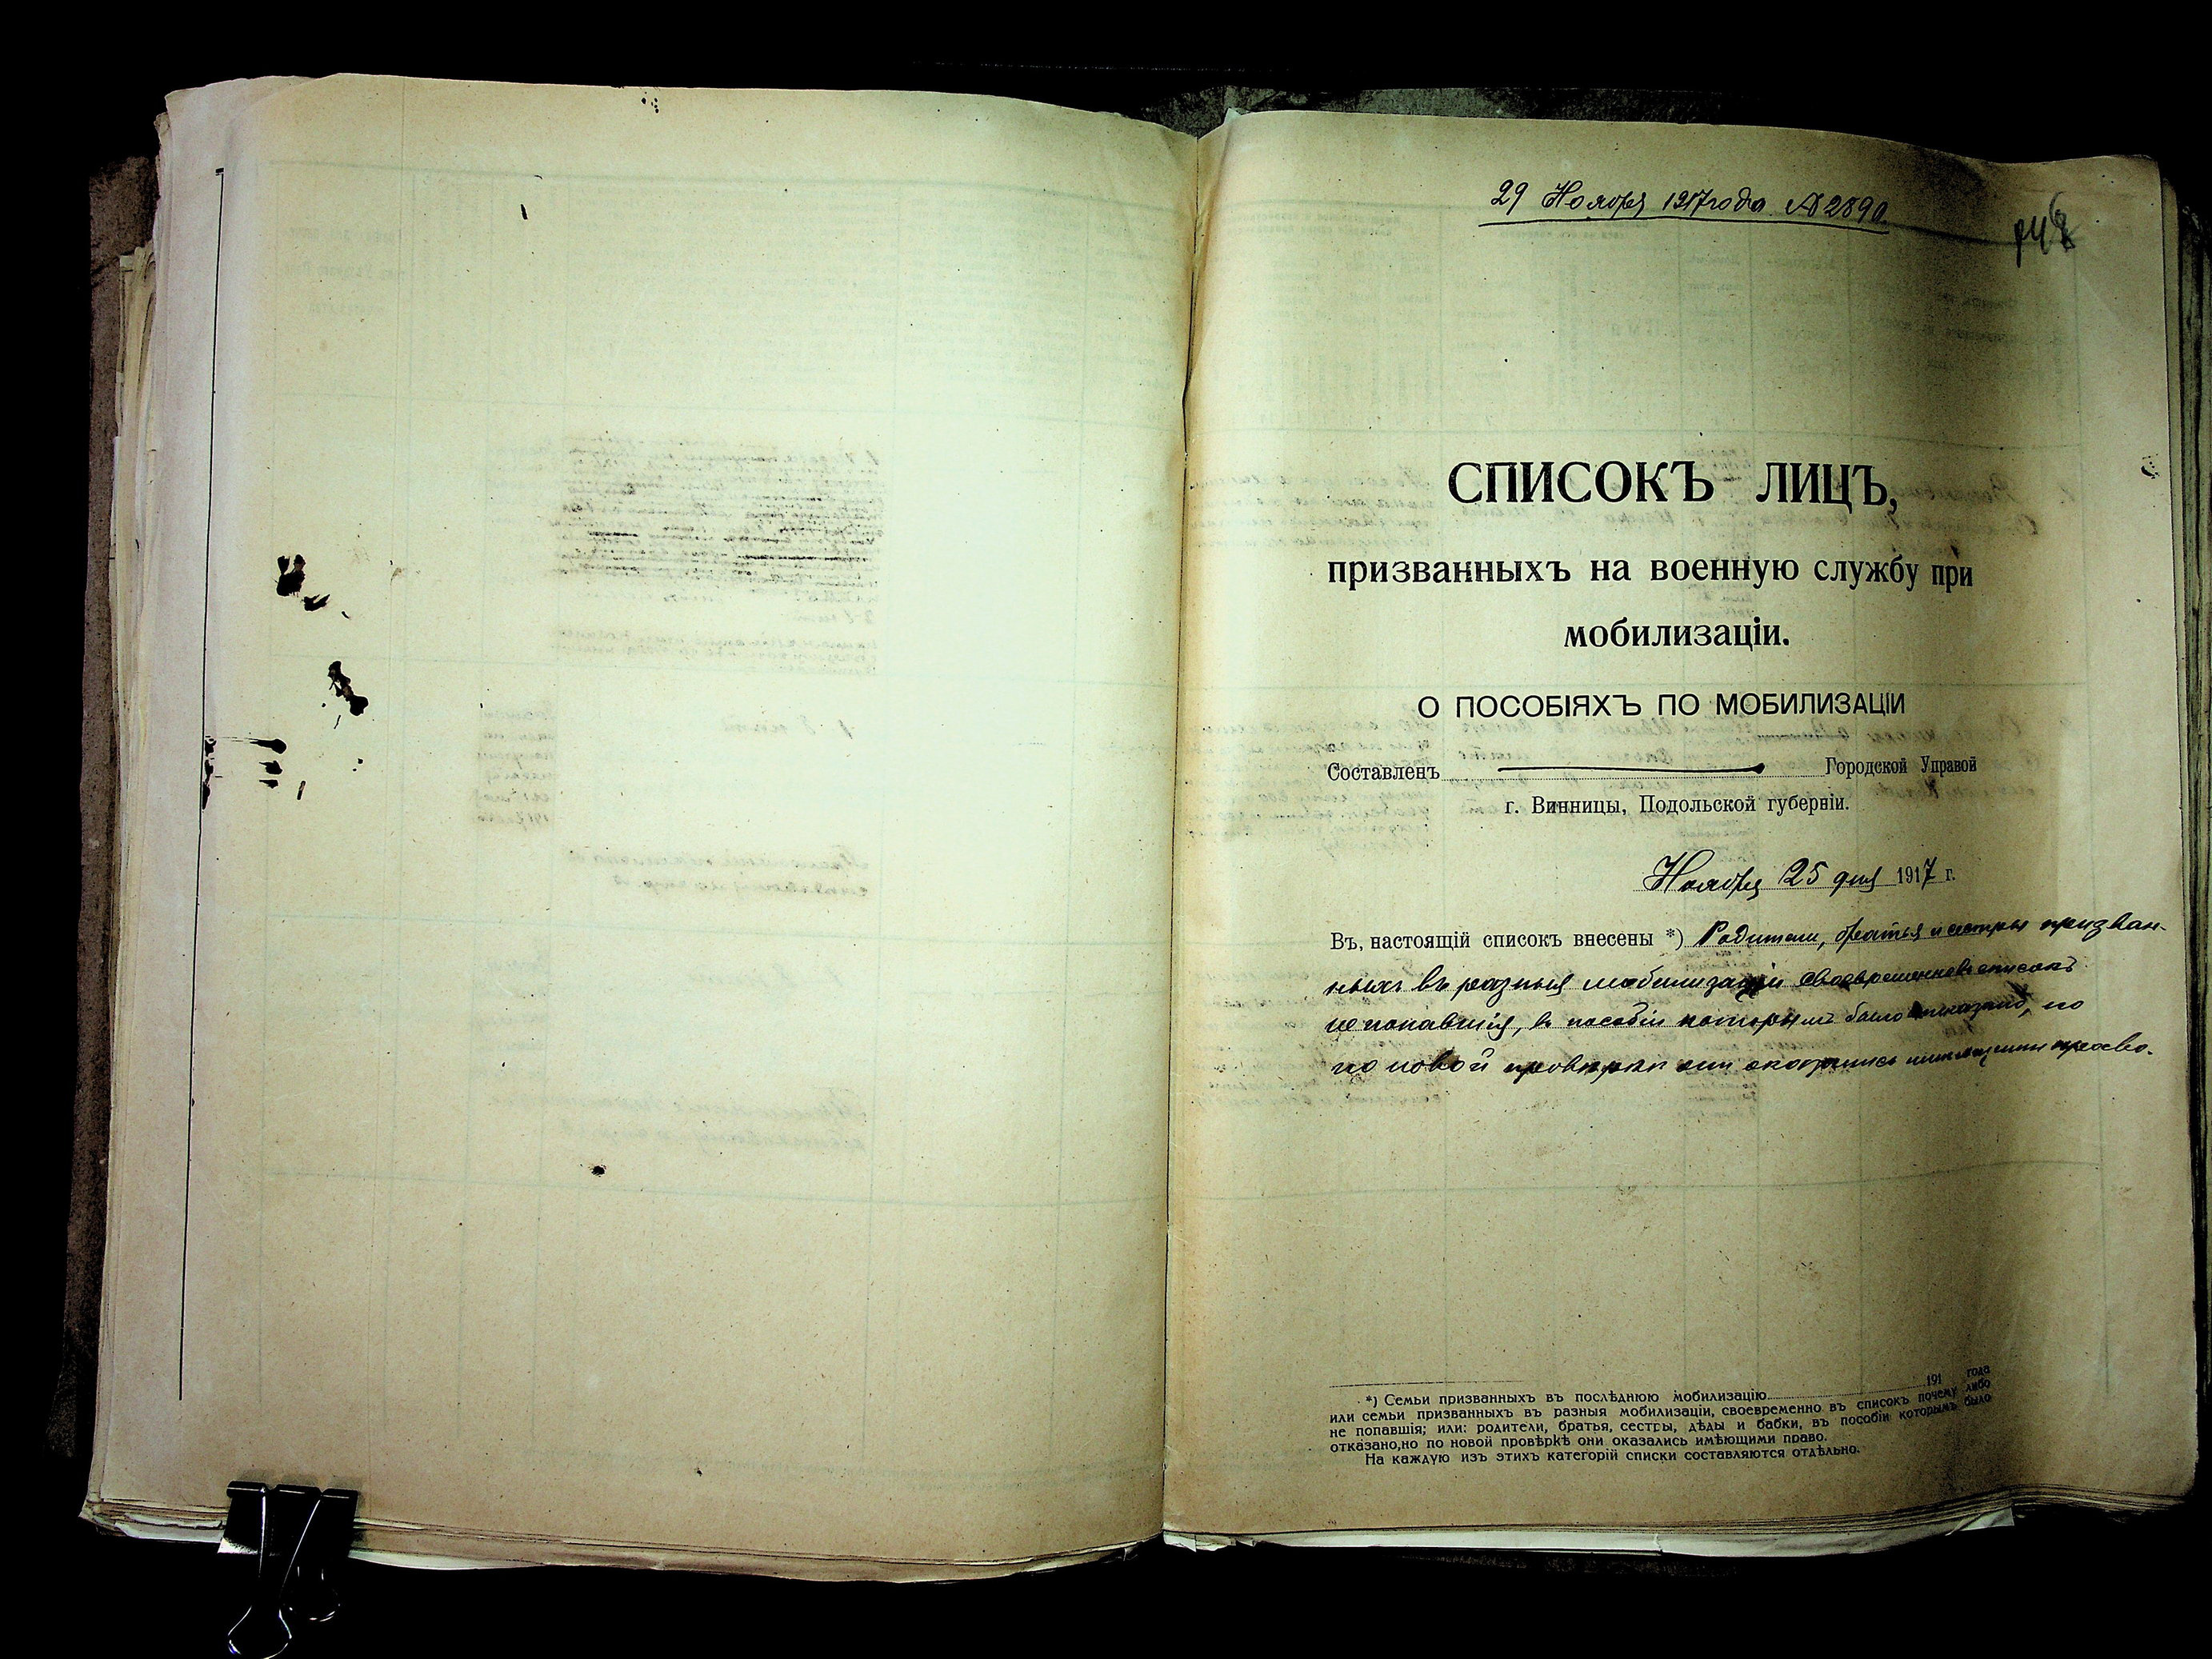 29 Ноября 1917 года № 2890
СПИСОКЪ ЛИЦЪ,
призванныхъ на военную службу при
мобилизаціи.
О ПОСОБІЯХЪ ПО МОБИЛИЗАЦІИ
Составленъ Городской Управой
г. Винницы, Подольской губерніи.
Ноября 25 дня 1917 г.
Въ, настоящій списокъ внесены *) Родители, братья и сестры призван-
ныхъ въ разныя мобилизаціи своевременно въ списокъ
не попавшія, в пособіи которымъ было отказано, но
по новой провѣркѣ они оказались имѣющими право.
*) Семьи призванныхъ въ послѣднюю мобилизацію 191 года
или семьи призванныхъ въ разныя мобилизаціи, своевременно въ списокъ почему либо
не попавшія; или: родители, братья, сестры, дѣды и бабки, въ пособіи которымъ было
отказано,но по новой провѣркѣ они оказались имѣющими право.
На каждую изъ этихъ категорій списки составляются отдѣльно.